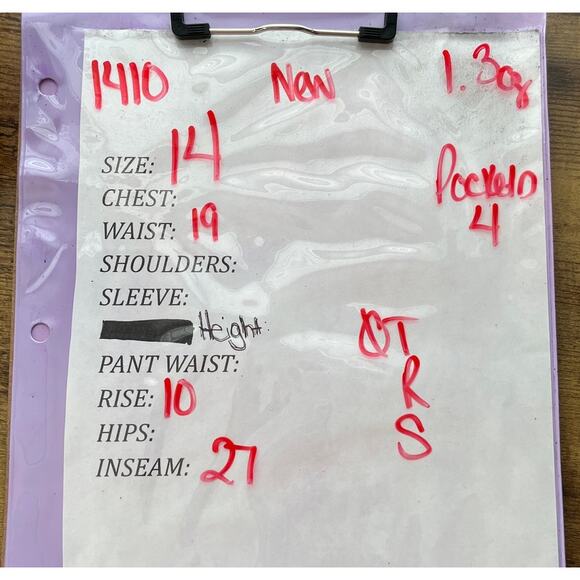 1410 New 1.3oz
SIZE: 14
Pockets
4
CHEST:
WAIST: 19
SHOULDERS:
SLEEVE:
Height:
PANT WAIST:
RISE: 10
HIPS:
INSEAM: 27
T
R
S